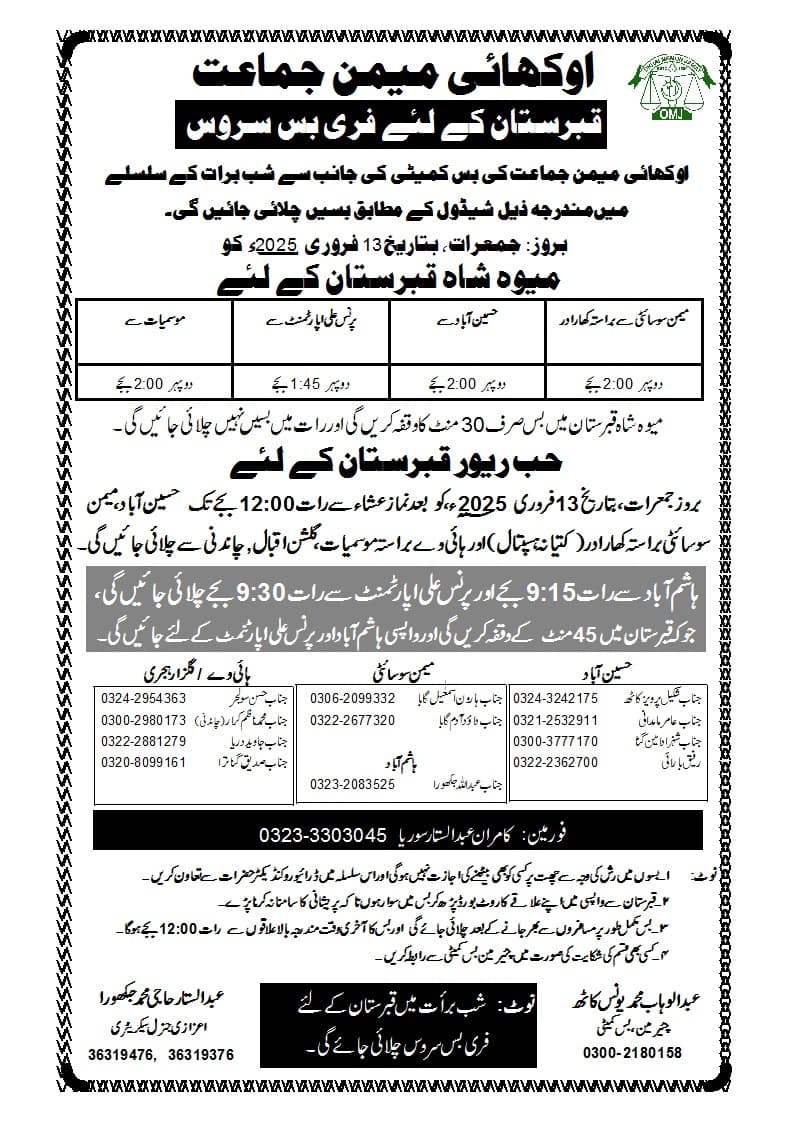 اوکھائی میمن جماعت
OMJ
قبرستان کے لئے فری بس سروس
اوکھائی میمن جماعت کی بس کمیٹی کی جانب سے شب برات کے سلسلے
میں مندرجہ ذیل شیڈول کے مطابق بسیں چلائی جائیں گی۔
بروز: جمعرات، بتاریخ 13 فروری 2025ء کو
میوہ شاہ قبرستان کے لئے
میمن سوسائٹی سے براستہ کھارادر
حسین آباد سے
پرنس علی اپارٹمنٹ سے
موسمیات سے
دوپہر 2:00 بجے
دوپہر 2:00 بجے
دوپہر 1:45 بجے
دوپہر 2:00 بجے
میوہ شاہ قبرستان میں بس صرف 30 منٹ کا وقفہ کریں گی اور رات میں بسیں نہیں چلائی جائیں گی۔
حب ریور قبرستان کے لئے
بروز جمعرات، بتاریخ 13 فروری 2025ء، کو بعد نماز عشاء سے رات 12:00 بجے تک حسین آباد، میمن
سوسائٹی براستہ کھارادر (کتیانہ ہسپتال) اور ہائی وے براستہ موسمیات، گلشن اقبال, چاندنی سے چلائی جائیں گی۔
ہاشم آباد سے رات 9:15 بجے اور پرنس علی اپارٹمنٹ سے رات 9:30 بجے چلائی جائیں گی،
جو کہ قبرستان میں 45 منٹ کے وقفہ کریں گی اور واپسی ہاشم آباد اور پرنس علی اپارٹمنٹ کے لئے جائیں گی۔
حسین آباد
جناب شکیل پرویز کاٹھ 0324-3242175
جناب عامر مامدانی 0321-2532911
جناب شہزاد امین گنا 0300-3777170
رفیق بارائی 0322-2362700
میمن سوسائٹی
جناب ہارون اسمٰعیل گابا 0306-2099332
جناب داؤد آدم گابا 0322-2677320
ہاشم آباد
جناب عبداللہ جکھورا 0323-2083525
ہائی وے / گلزار ہجری
جناب حسن سولجر 0324-2954363
جناب محمد ناظم کمار (چاندنی) 0300-2980173
جناب جاوید دریا 0322-2881279
جناب صدیق گناترا 0320-8099161
فورمین: کامران عبدالستار سوریا 0323-3303045
نوٹ: ۱۔بسوں میں رش کی وجہ سے چھت پر کسی کو بھی بیٹھنے کی اجازت نہیں ہوگی اور اس سلسلہ میں ڈرائیور و کنڈیکٹر حضرات سے تعاون کریں۔
۲۔قبرستان سے واپسی میں اپنے علاقے کا روٹ بورڈ پڑھ کر بس میں سوار ہوں تاکہ پریشانی کا سامنا نہ کرنا پڑے۔
۳۔بس مکمل طور پر مسافروں سے بھر جانے کے بعد چلائی جائے گی اور بس کا آخری وقت مندرجہ بالا علاقوں سے رات 12:00 بجے ہوگا۔
۴۔کسی بھی قسم کی شکایت کی صورت میں چیئرمین بس کمیٹی سے رابطہ کریں۔
عبدالوہاب محمد یونس کاٹھ
چیئرمین، بس کمیٹی
0300-2180158
نوٹ: شب برأت میں قبرستان کے لئے
فری بس سروس چلائی جائے گی۔
عبدالستار حاجی محمد جکھورا
اعزازی جنرل سیکریٹری
36319476, 36319376